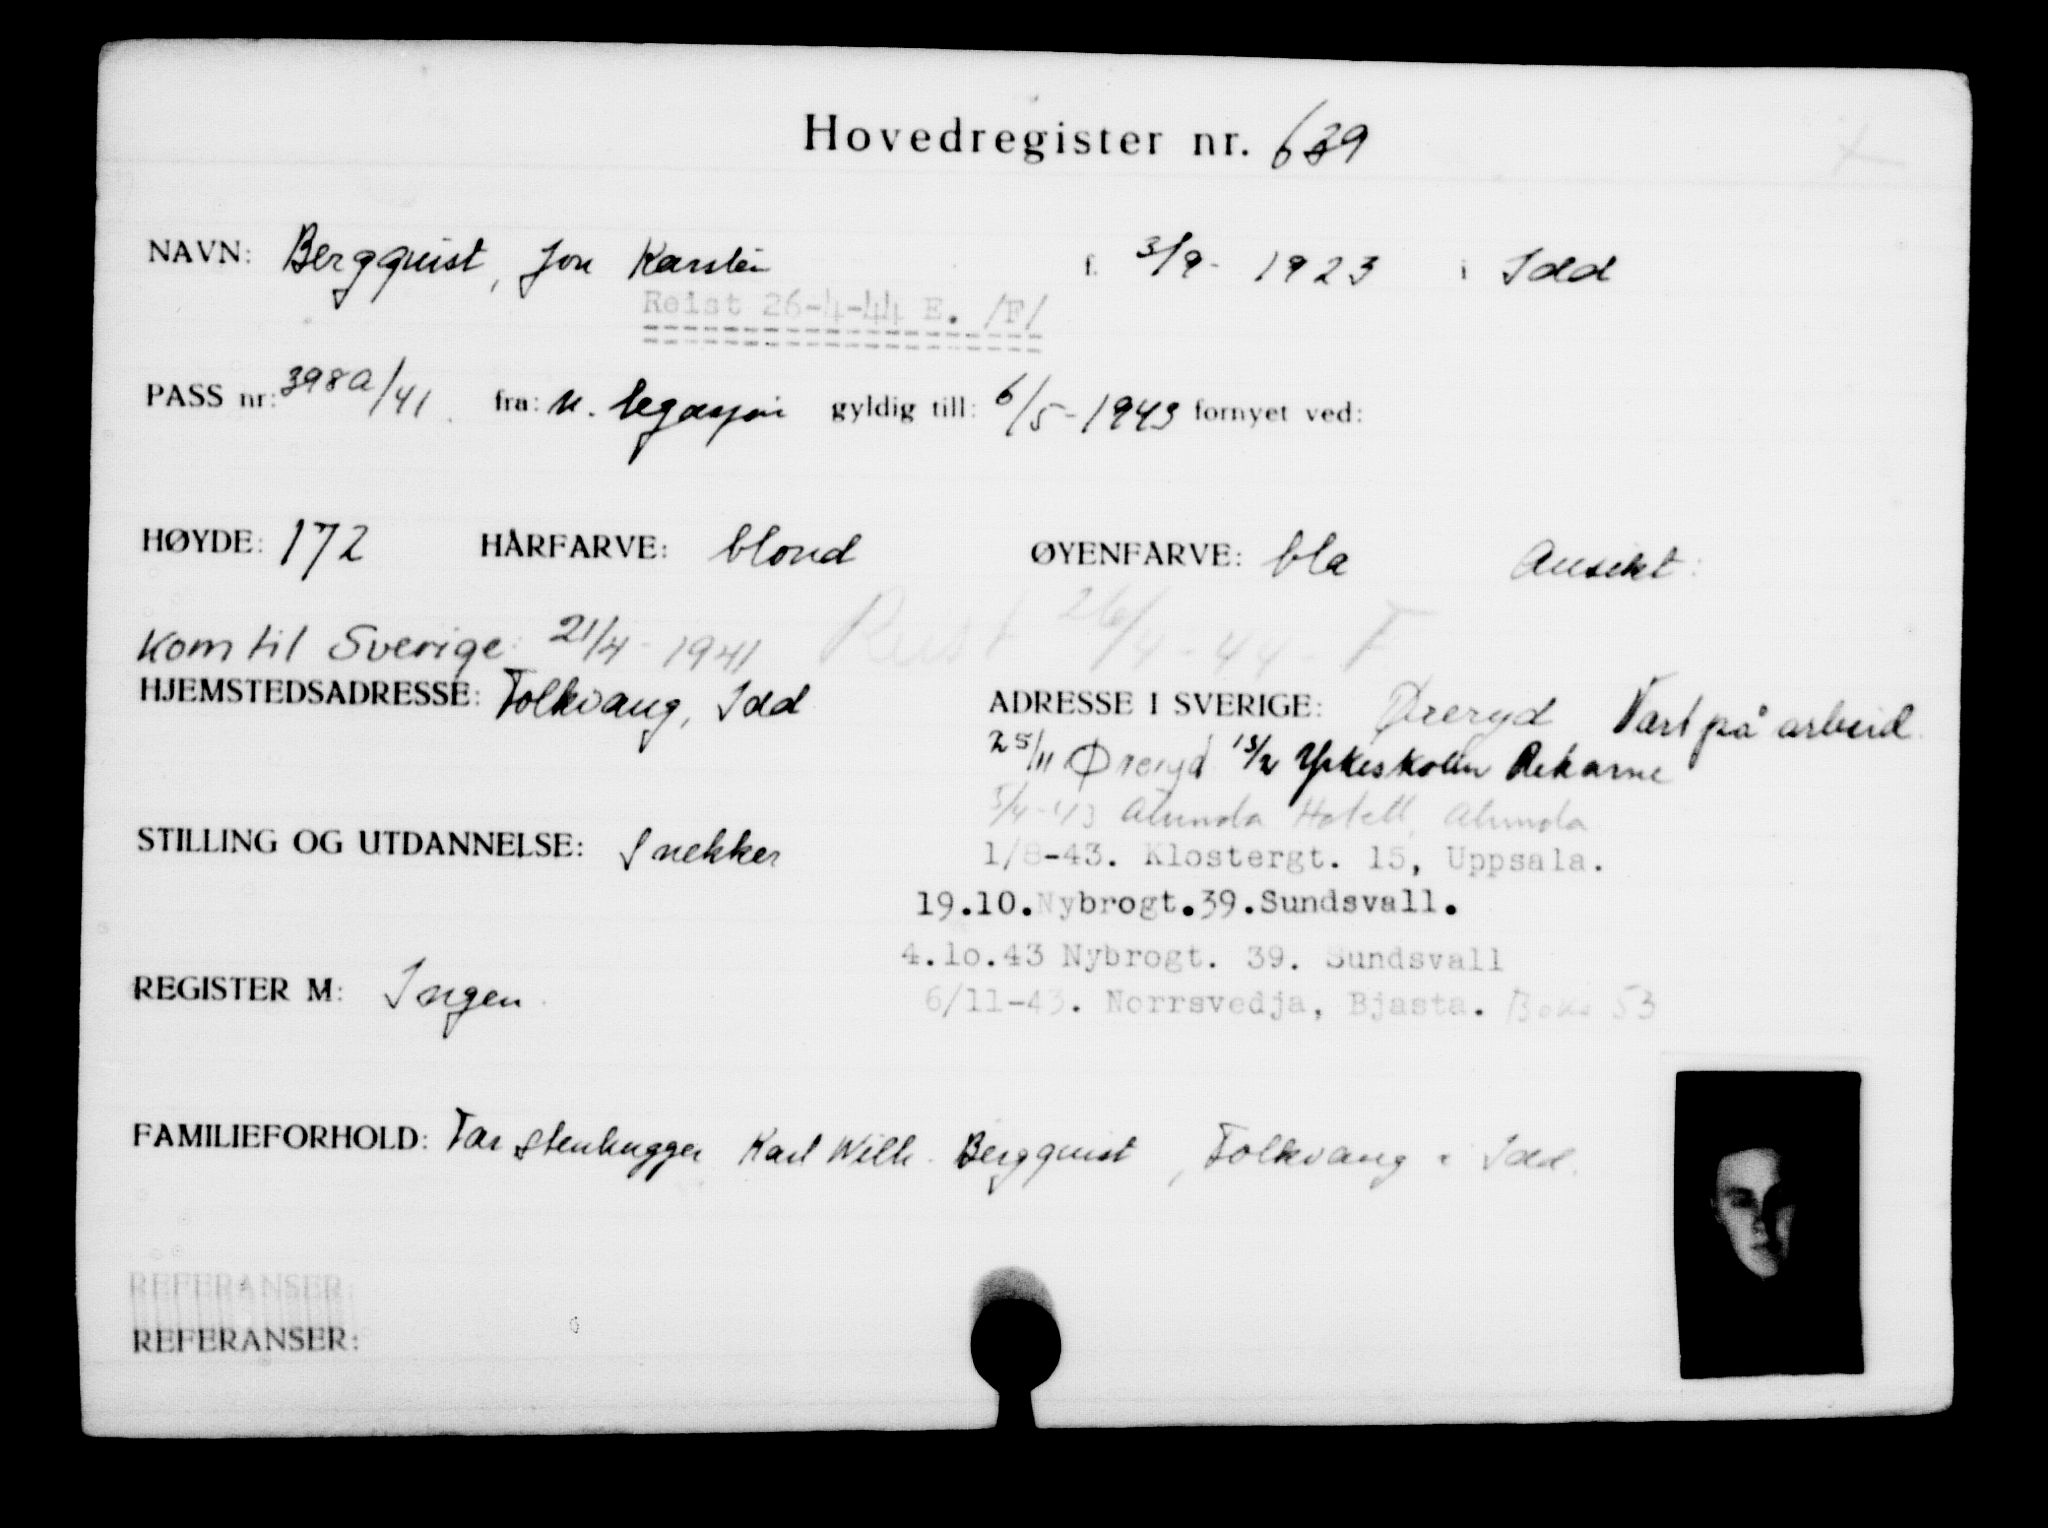 Hovedregister nr. 639
NAVN: Bergquist, Jon Karsten f. 3/9- 1923 i Idd
Reist 26-4-44 E. /F/
PASS nr: 398a/41 fra: n. legasjon gyldig till: 6/5-1943 fornyet ved:
HØYDE: 172 HÅRFARVE: blond ØYENFARVE: bla Ansikt:
Kom til Sverige: 21/4-1941 Reist 26/4-44- F.
HJEMSTEDSADRESSE: Folkvang, Idd ADRESSE I SVERIGE: Øreryd Vært på arbeid
25/11 Øreryd 13/2 Yrkeskolen Rekarne
5/4-43 Alunda Hotell, Alunda
STILLING OG UTDANNELSE: Snekker 1/8-43. Klostergt. 15, Uppsala.
19.10.Nybrogt.39.Sundsvall.
4.1o.43 Nybrogt. 39. Sundsvall
REGISTER M: Ingen 6/11-43. Norrsvedja, Bjasta. Boks 53
FAMILIEFORHOLD: Far stenhugger Karl Wilh. Bergquist, Folkvang i Idd.
REFERANSER:
REFERANSER: